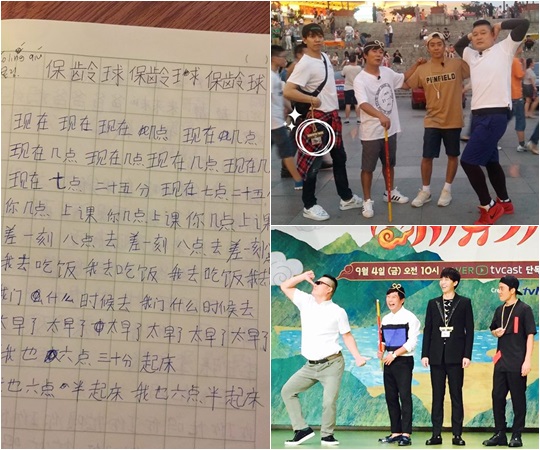 保龄球 保龄球 保龄球
现在 现在 现在 几点 现在几点
现在几点 现在几点 现在几点 现在几
现在 七点 二十五分 现在七点二十五
你几点 上课 你几点上课 你几点上课
差一刻 八点 去 差一刻 八点 去 差一刻
我去吃饭 我去吃饭 我去吃饭 我去吃饭
我们 什么 时候去 我们什么时候去
太早了 太早了 太早了 太早了 太早了
我也 六点 三十分 起床
也六点 半起床 我也六点半起床
PENFIELD
9월 4일 (금) 오전 10시
tvcast 단독